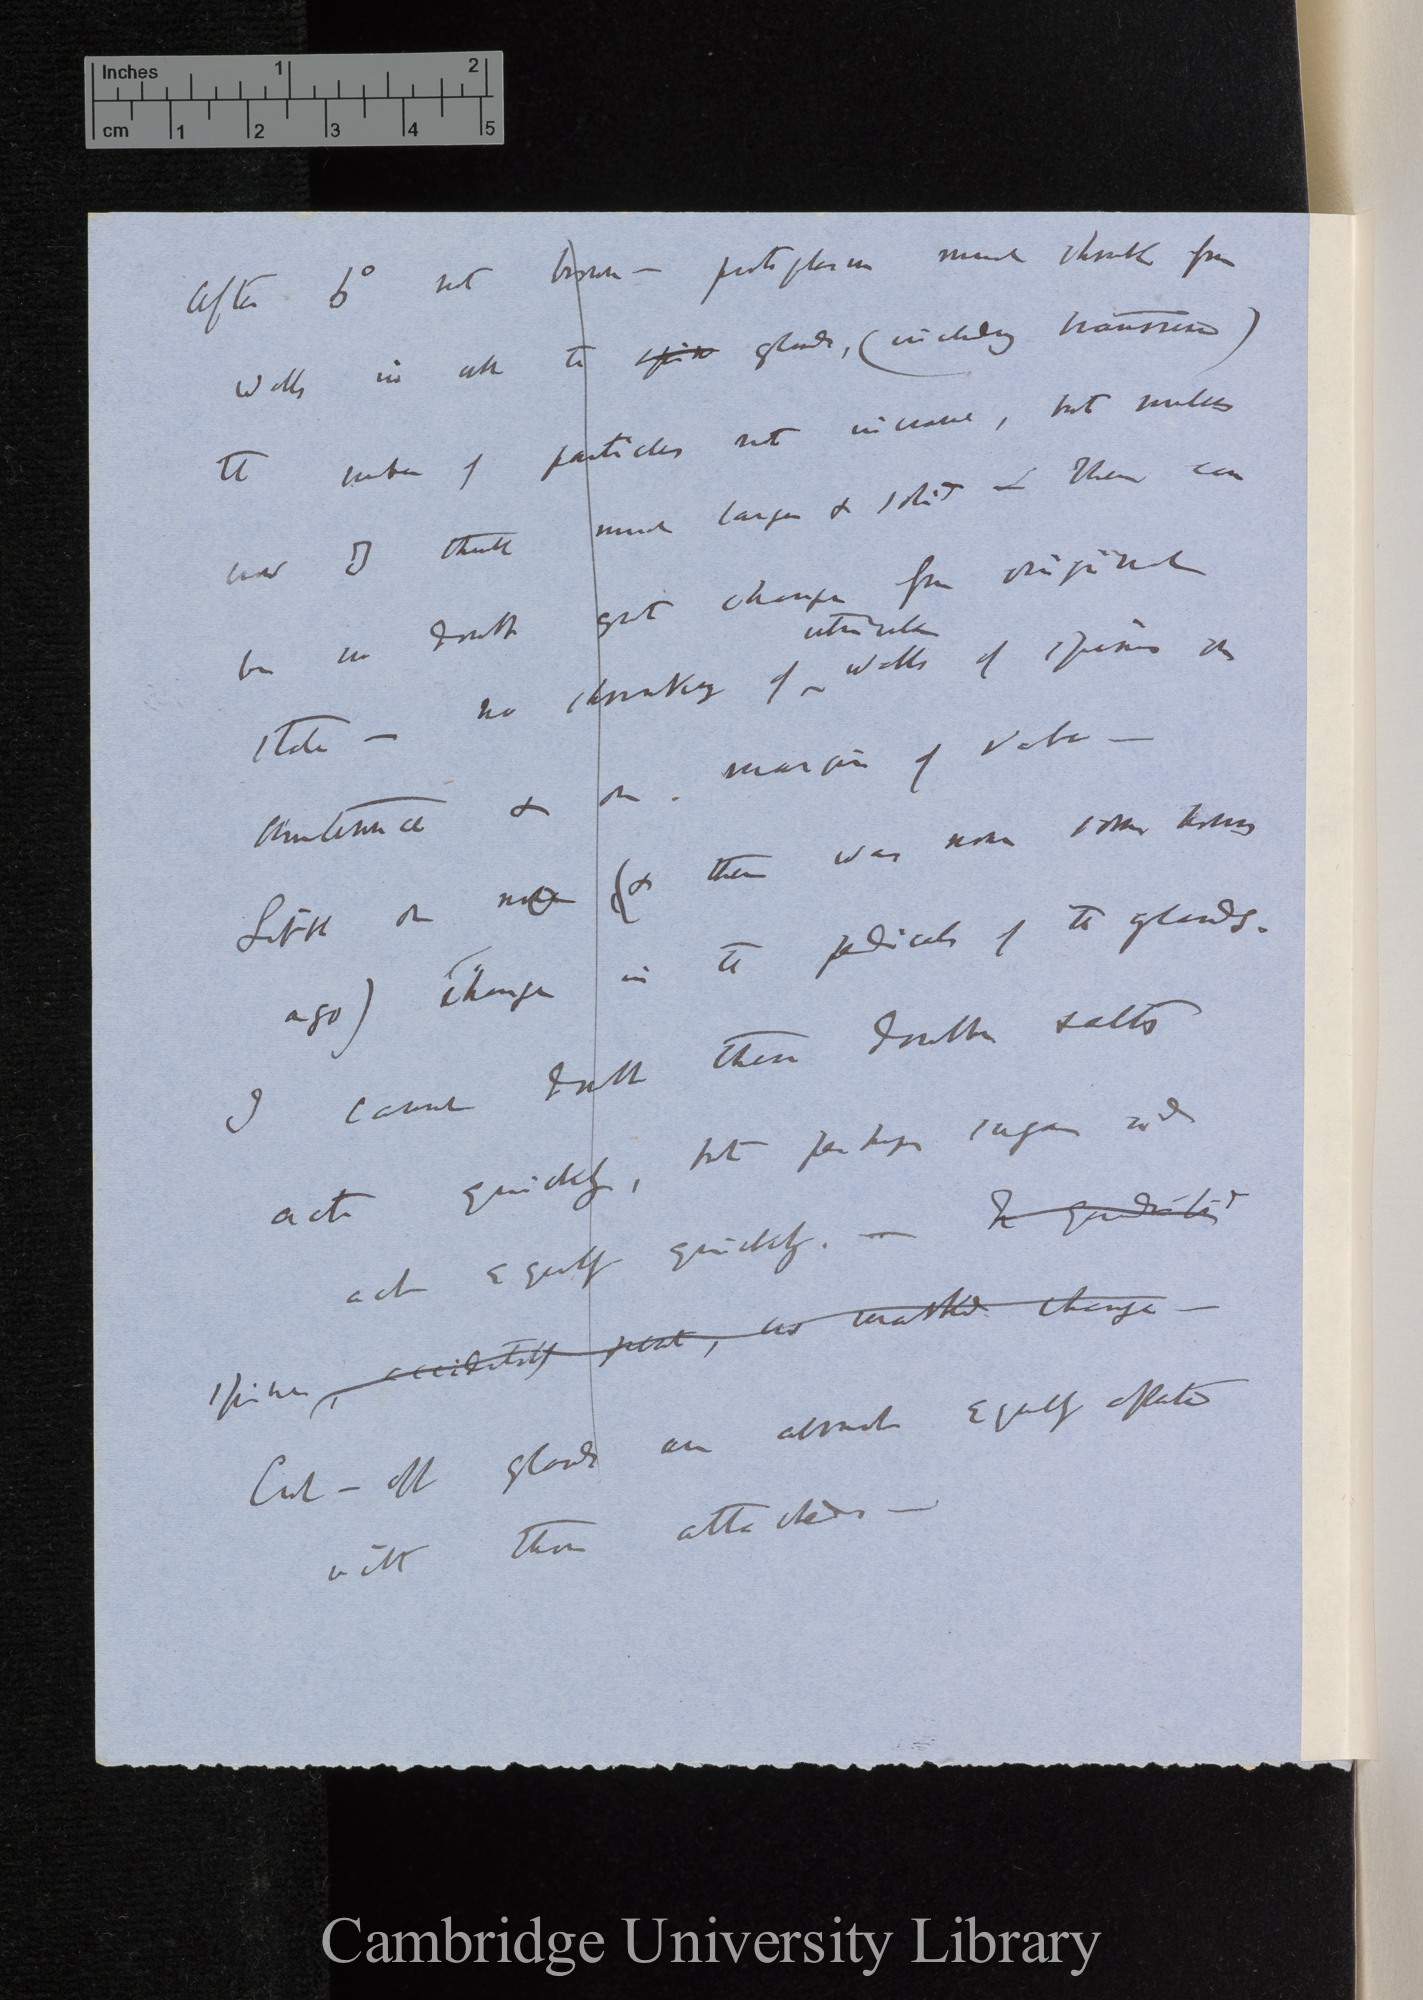 Inches 1 2
cm 1 2 3 4 5
After 6° not brown — protoplasm much shrunk from
walls in all the spine glands, (including transverse)
The number of particles not increased, but nucleus
now I think much larger & solid — There can
be no doubt great change from original
utricle
state — no shrinking of ^ walls of spines on
& on margin of valve —
Little or none (& there was none some hours
ago) change in the pedicels of the glands.
I cannot doubt these double salts
acts quickly, but perhaps sugar wd
act equally quickly. — In
spines, accidentally present, no marked change —
Cut-off glands are almost equally affected
with those attached —
Cambridge University Library